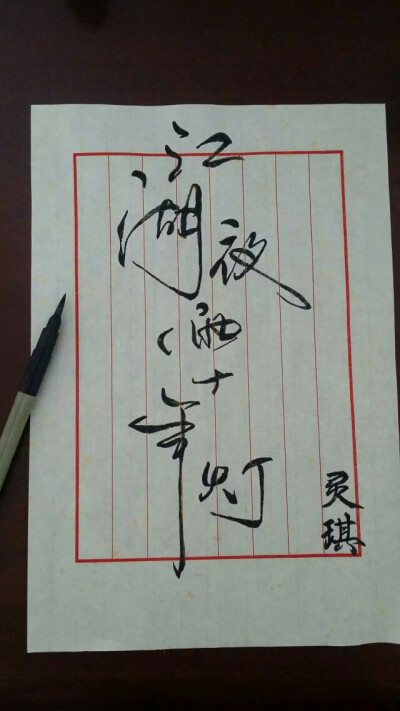 江湖夜雨十年灯
灵琪